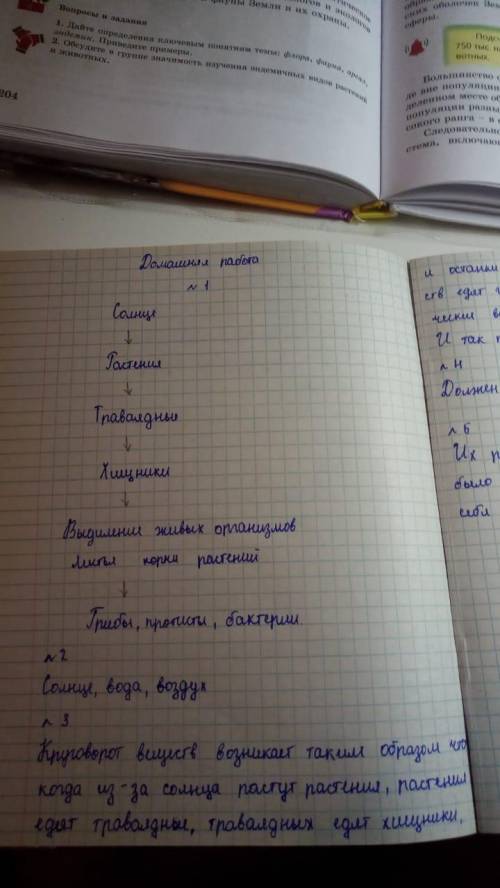 фауны Земли и их охраны.
Вопросы и задания
1. Дайте определения ключевым понятиям темы: флора, фауна, ареал,
эндемик. Приведите примеры.
2. Обсудите в группе значимость изучения эндемичных видов растений
и животных.
204
ских оболочек Зем
сферы.
750 тыс
вотных.
Большинство
де вне популяции
деленном месте об
популяции разны
сокого ранга – в
Следовательно
стема, включаю
Домашняя работа
№ 1
Солнце
↓
Растения
↓
Траваядные
↓
Хищники
↓
Выделения живых организмов
листья корни растений
↓
Грибы, протисты, бактерии.
№ 2
Солнце, вода, воздух
№ 3
Круговорот веществ возникает таким образом что
когда из-за солнца растут растения, растения
едят траваядные, траваядных едят хищники,
и останки
ств едят
ческие в
И так
№ 4
Должен
№ 6
Их р
было
себя